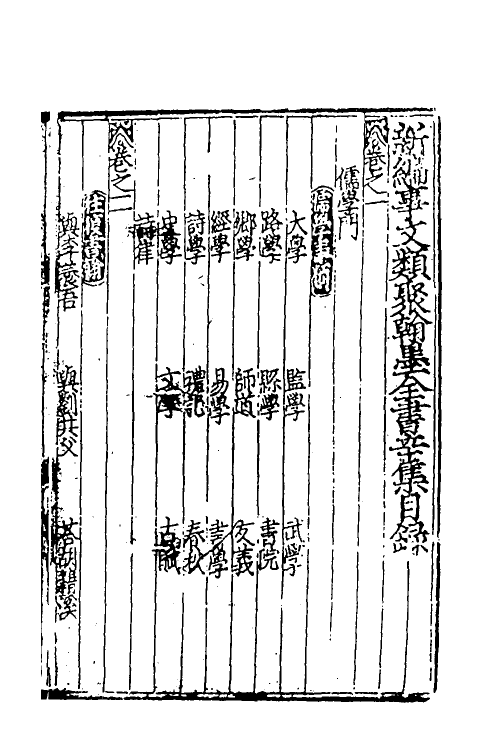 新編事文類聚翰墨全書辛集目錄
卷之一
儒學門
儒學事
大學 監學 武學
路學 縣學 書院
鄉學 師道 友義
經學 易學 書學
詩學 禮記 春秋
史學 文學 古賦
詩律
卷之二
往復書
與李誠吾 與劉共父 答胡溪